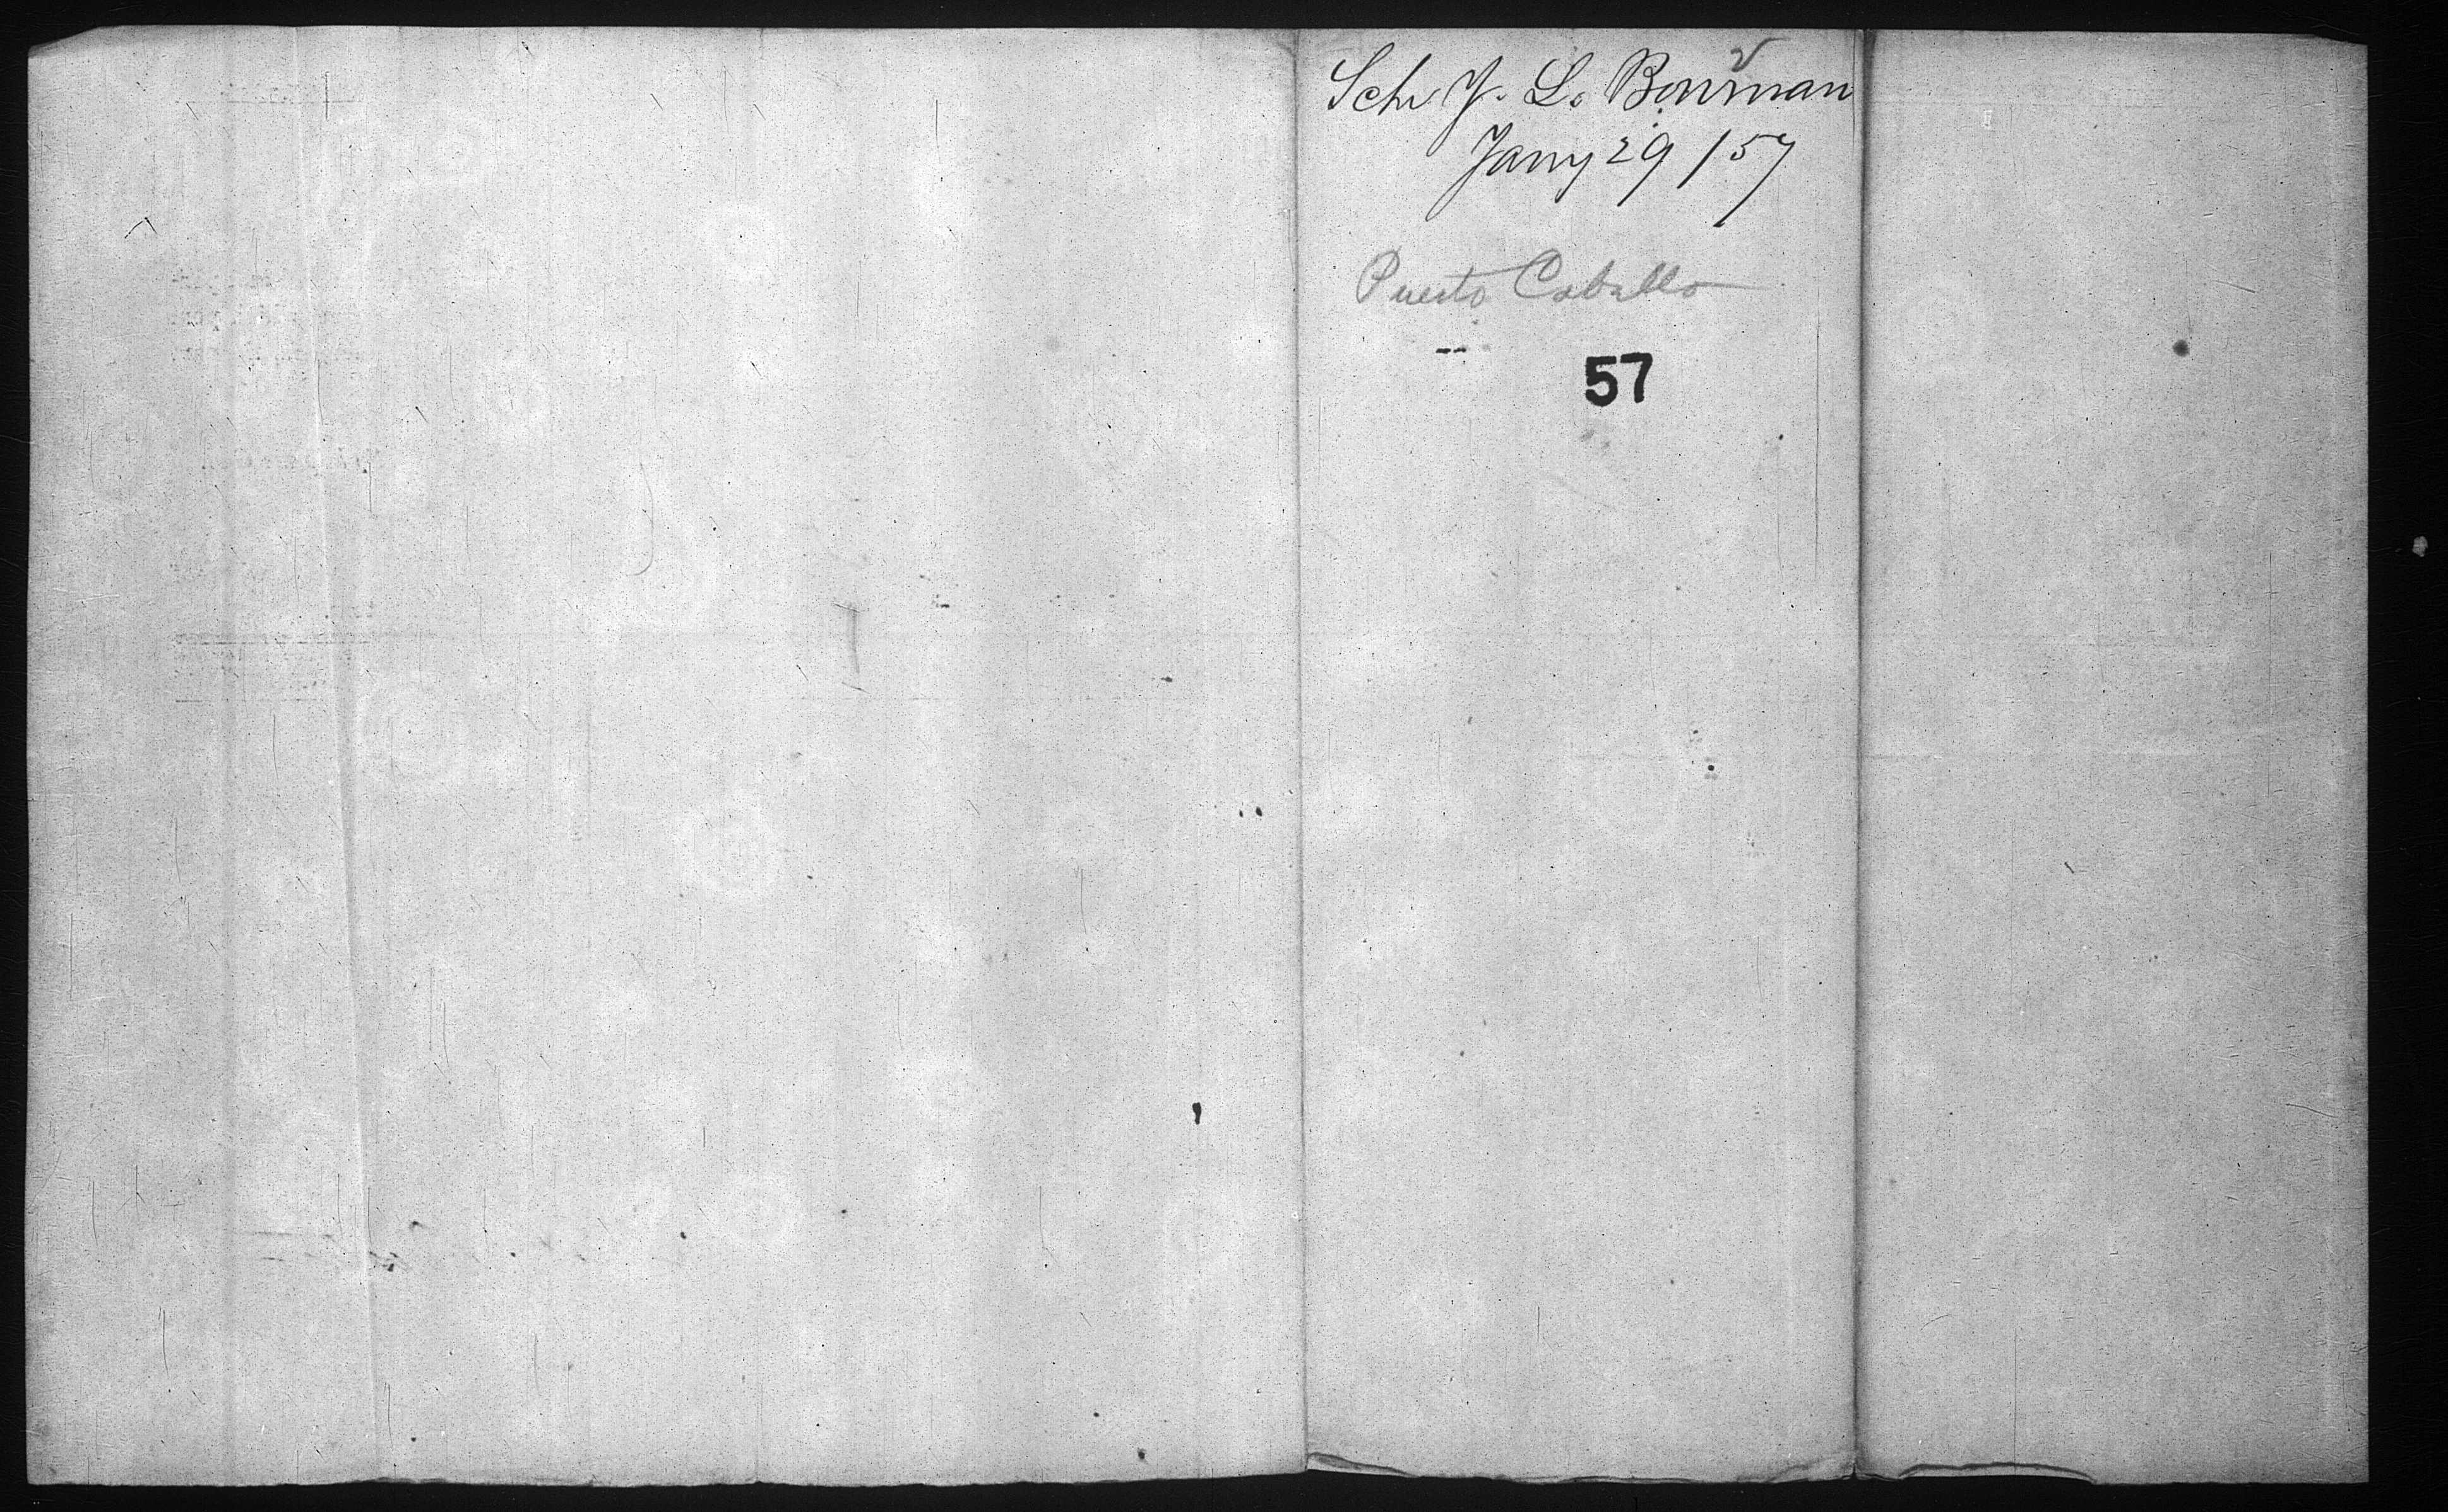 Sch J. L. Bowman
Jany 29 / 57
Puerto Cabello
57